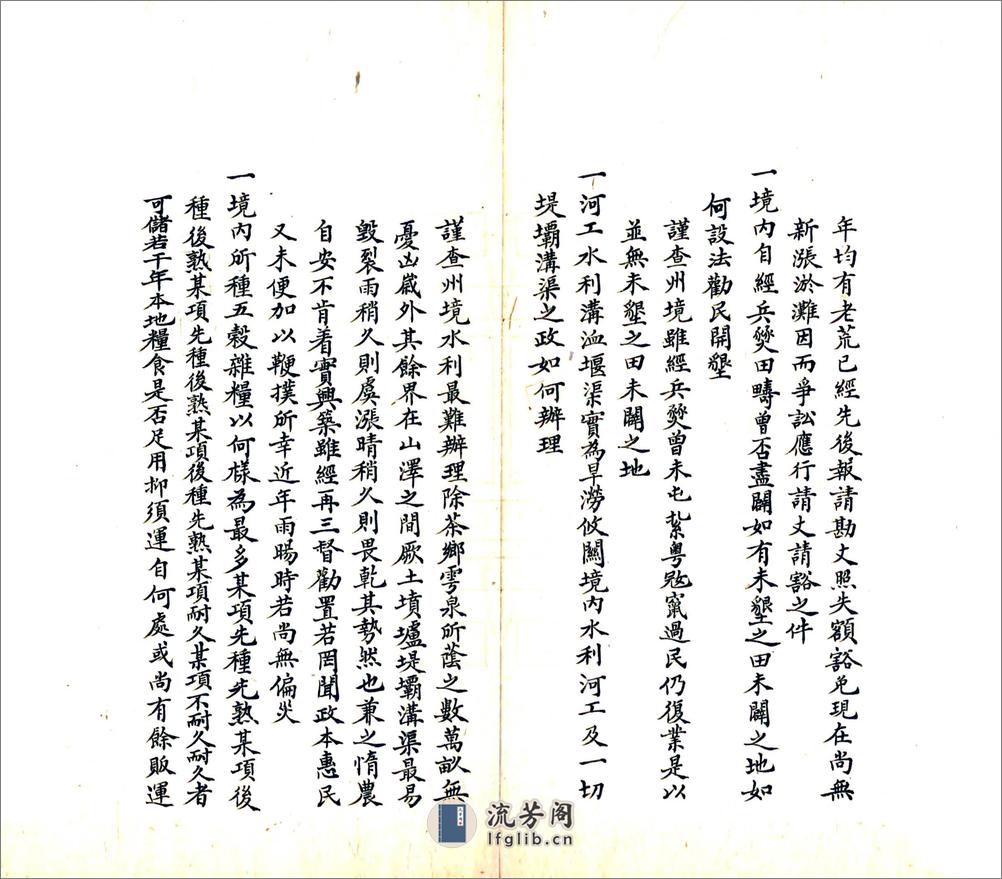 年均有老荒已經先後報請勘丈照失額豁免現在尚無
新漲淤灘因而爭訟應行請丈請豁之件
一境內自經兵燹田疇曾否盡闢如有未墾之田未闢之地如
何設法勸民開墾
謹查州境雖經兵燹曾未屯紮粵寇竄過民仍復業是以
並無未墾之田未闢之地
一河工水利溝洫堰渠實為旱澇攸關境內水利河工及一切
堤壩溝渠之政如何辦理
謹查州境水利最難辦理除茶鄉雩泉所蔭之數萬畝無
憂凶歲外其餘界在山澤之間厥土墳壚堤壩溝渠最易
毀裂雨稍久則虞漲晴稍久則畏乾其勢然也兼之惰農
自安不肯着實興築雖經再三督勸置若罔聞政本惠民
又未便加以鞭撲所幸近年雨暘時若尚無偏災
一境內所種五穀雜糧以何樣為最多某項先種先熟某項後
種後熟某項先種後熟某項後種先熟某項耐久某項不耐久耐久者
可儲若干年本地糧食是否足用抑須運自何處或尚有餘販運
流芳阁
lfglib.cn